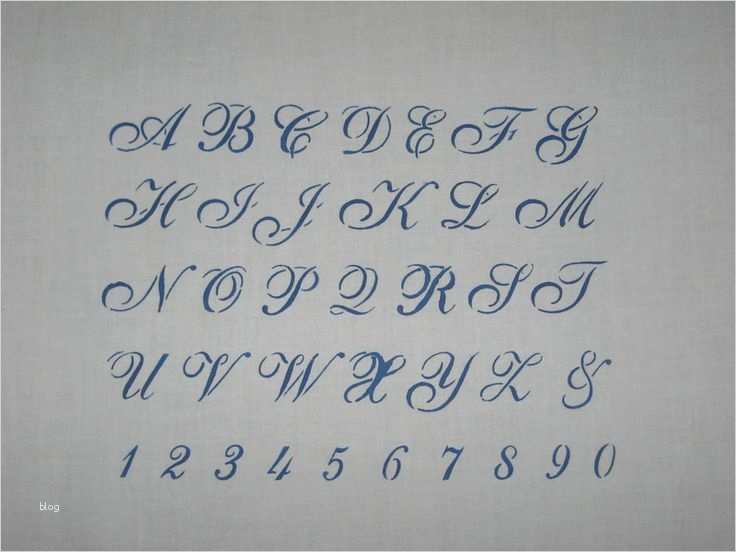 A B C D E F G
H I J K L M
N O P Q R S T
U V W X Y Z &
1 2 3 4 5 6 7 8 9 0
blog